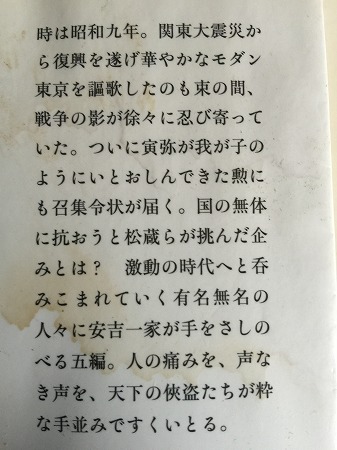 時は昭和九年。関東大震災か
ら復興を遂げ華やかなモダン
東京を謳歌したのも束の間、
戦争の影が徐々に忍び寄って
いた。ついに寅弥が我が子の
ようにいとおしんできた勲に
も召集令状が届く。国の無体
に抗おうと松蔵らが挑んだ企
みとは？　激動の時代へと呑
みこまれていく有名無名の
人々に安吉一家が手をさしの
べる五編。人の痛みを、声な
き声を、天下の俠盗たちが粋
な手並みですくいとる。